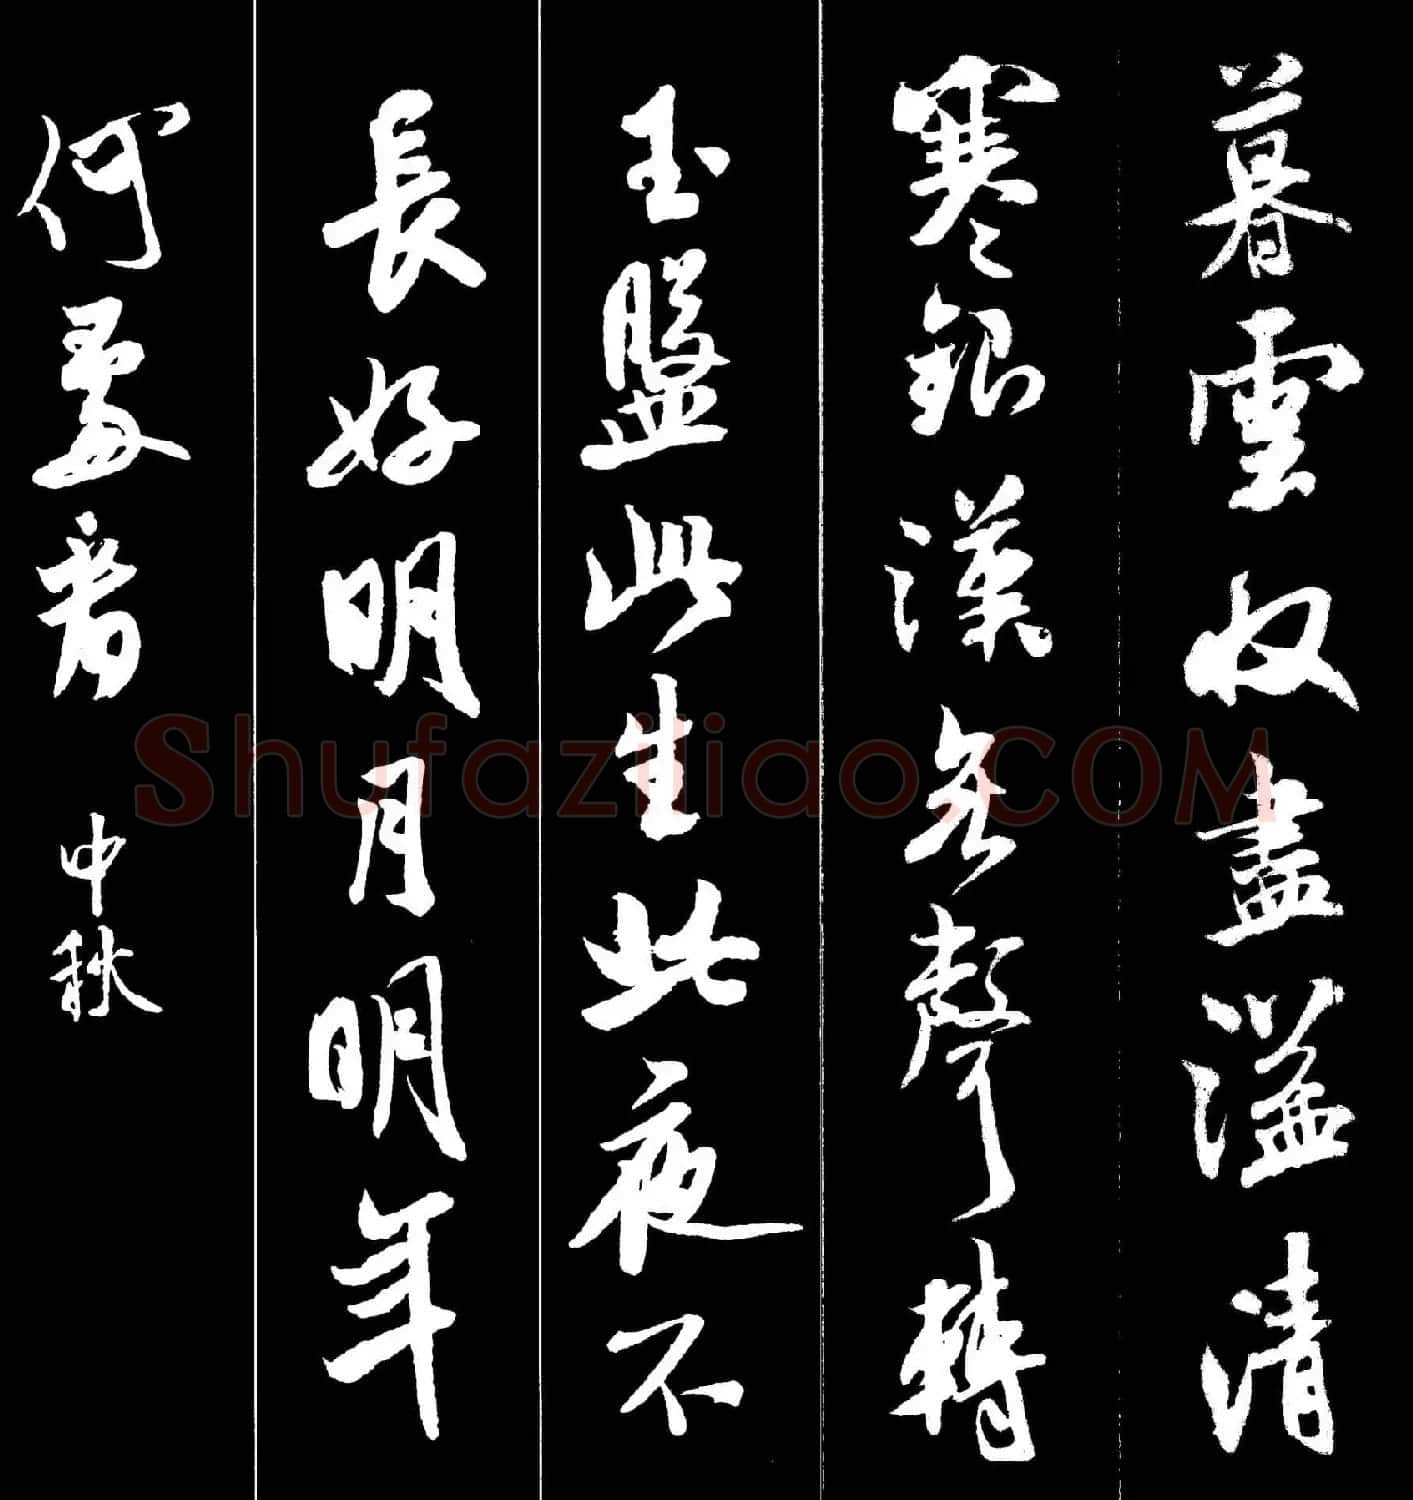 暮雲収盡溢清
寒銀漢無聲轉
玉盤此生此夜不
長好明月明年
何處看
中秋
Shufaziliao.COM